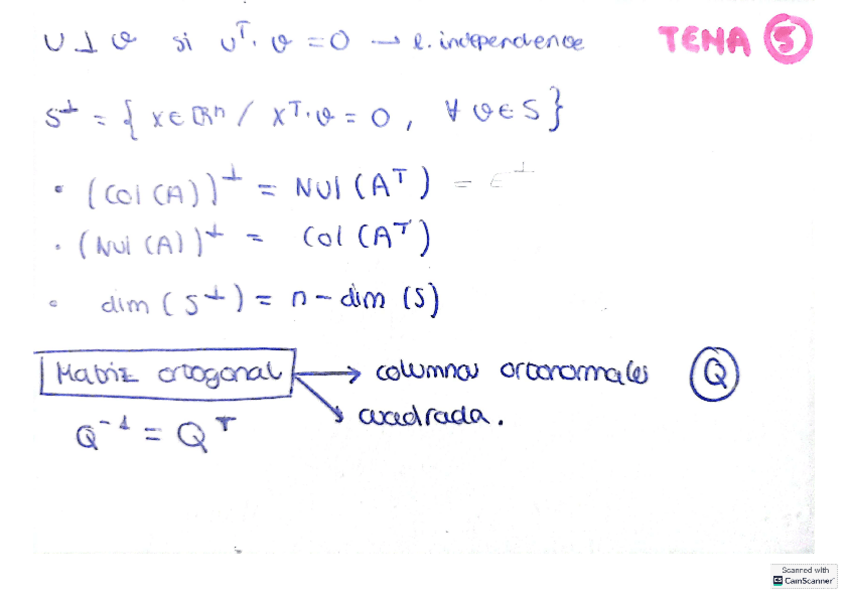 U ⊥ v si U^T · v = 0 → l. independence
TEMA 5
S^⊥ = { x ∈ ℝ^n / x^T · v = 0 , ∀ v ∈ S }
• (Col(A))^⊥ = Nul(A^T) = E^⊥
• (Nul(A))^⊥ = Col(A^T)
• dim(S^⊥) = n - dim(S)
Matriz ortogonal → columnas ortonormales Q
→ cuadrada.
Q^-1 = Q^T
Scanned with
CS CamScanner